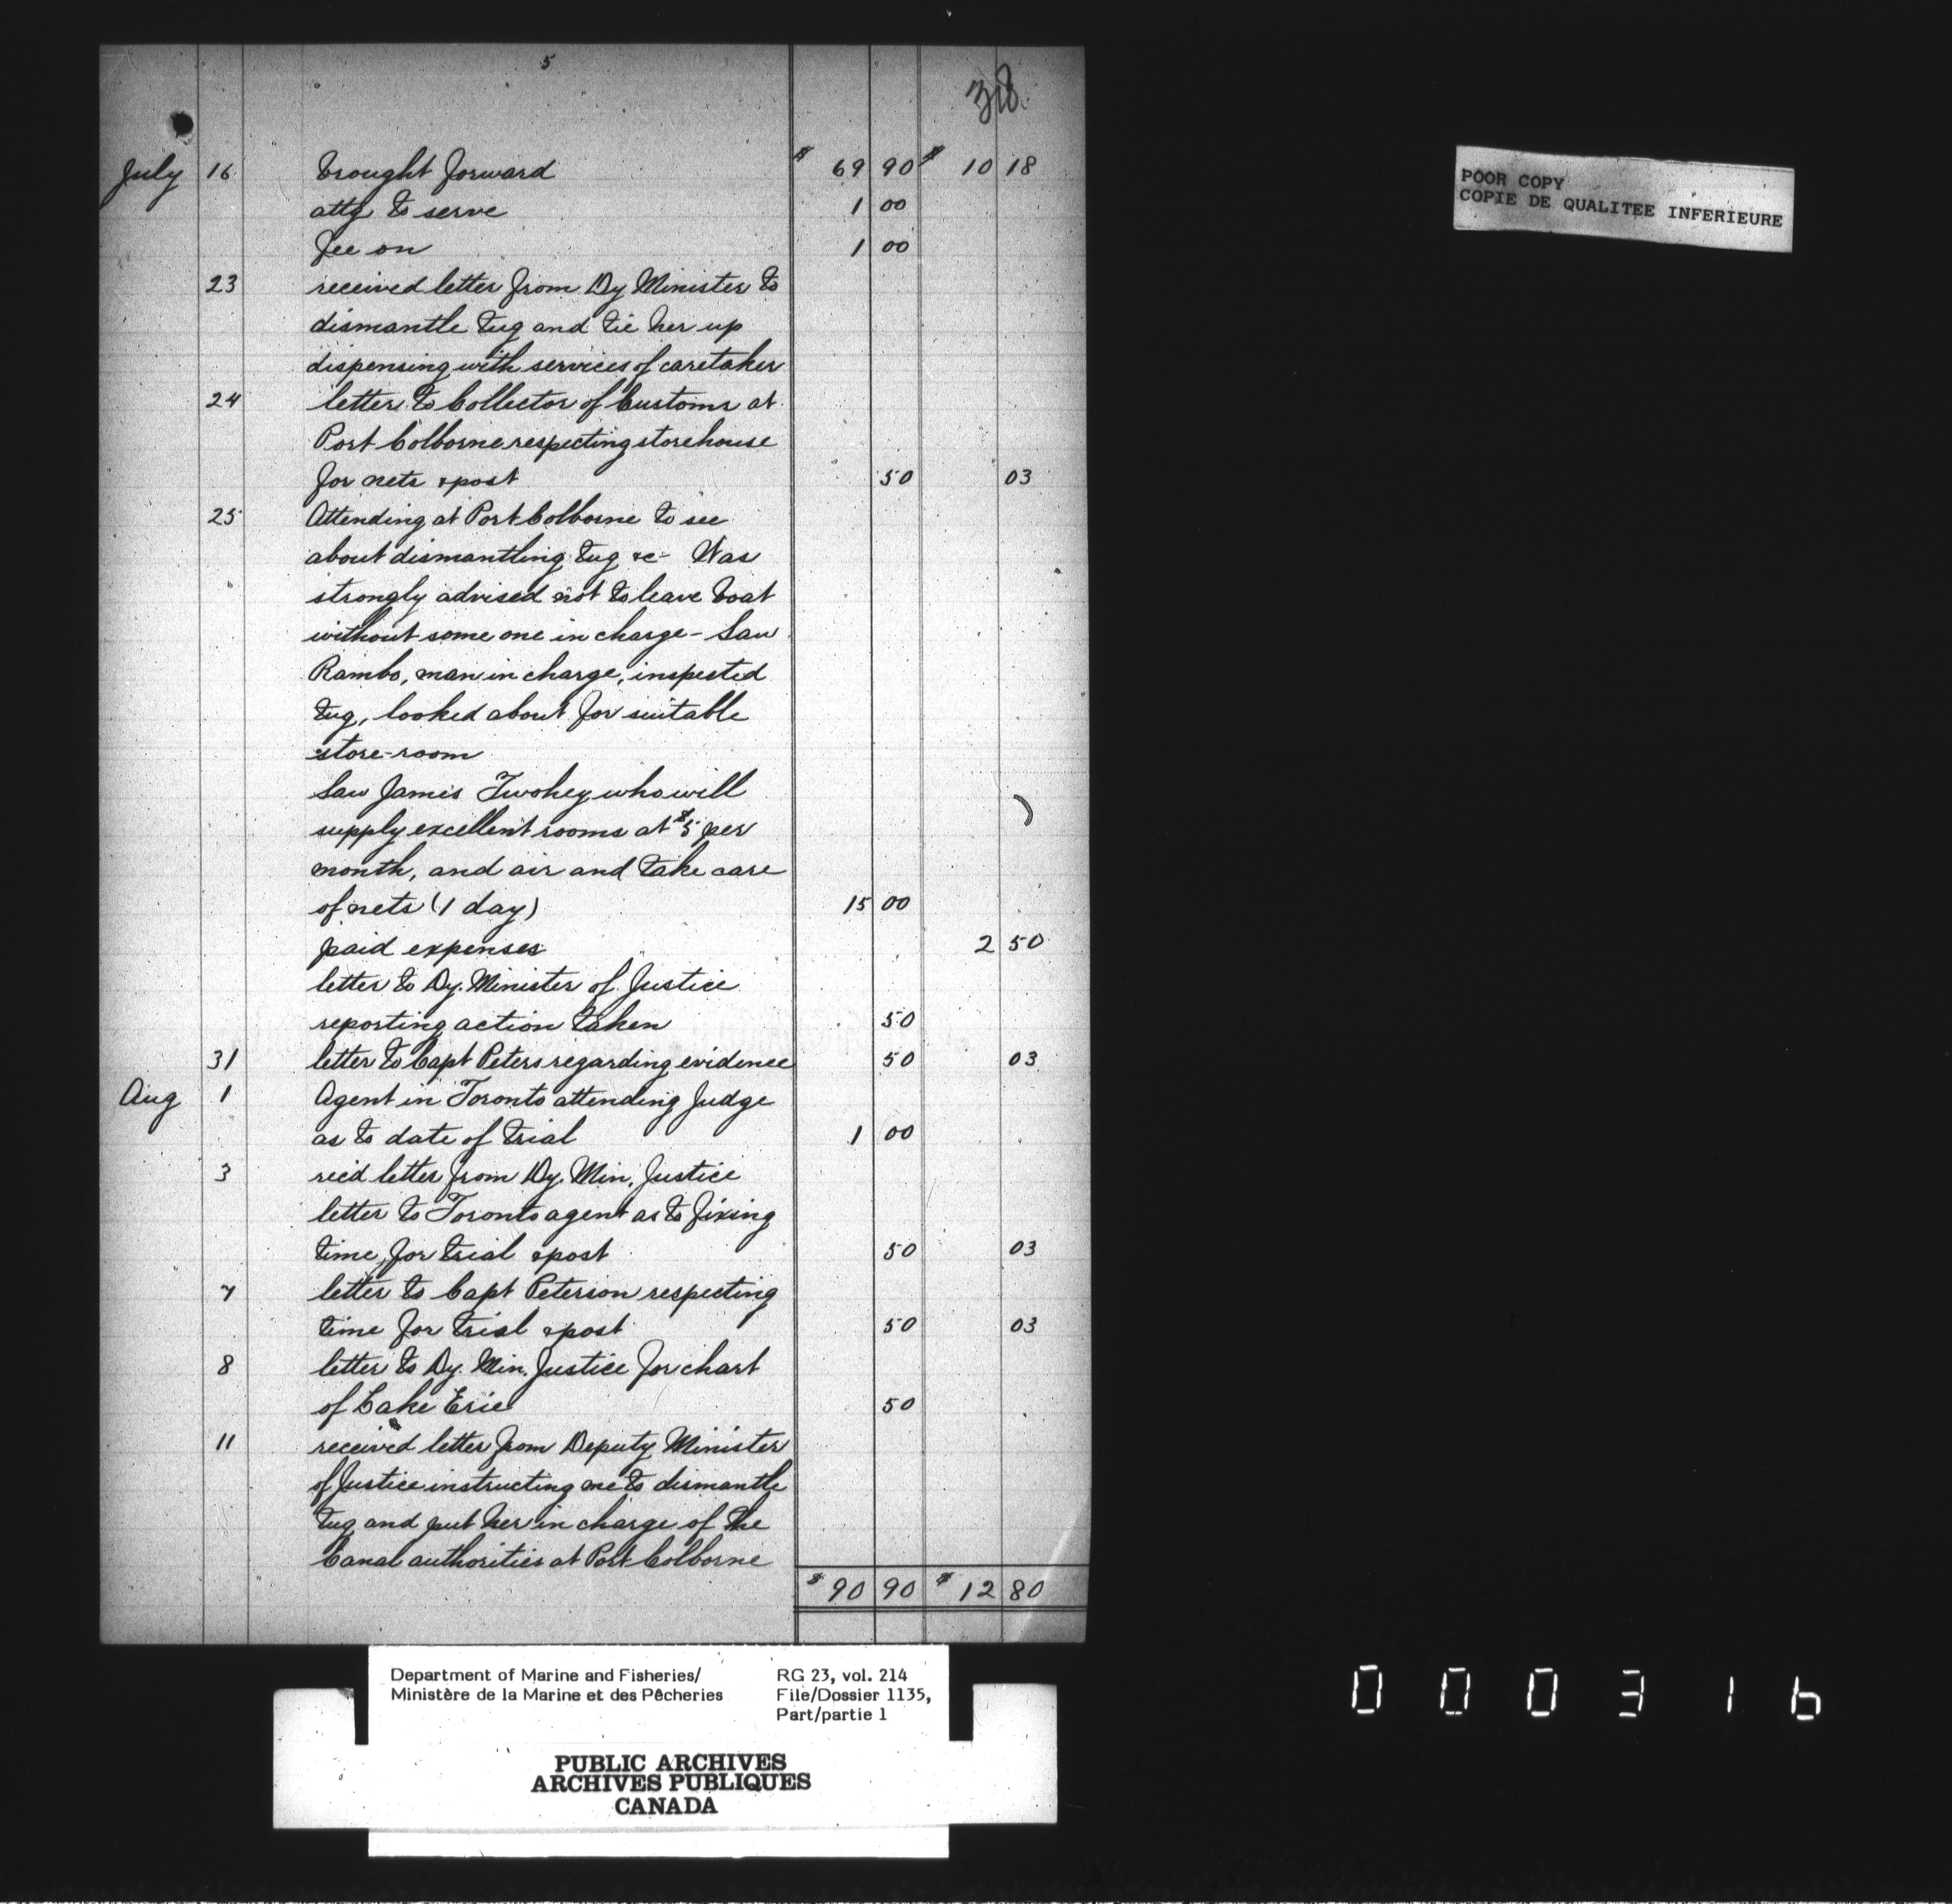 5
318
July 16 brought forward $ 69 90 $ 10 18
attg to serve 1 00
fee on 1 00
23 received letter from Dy Minister to
dismantle tug and tie her up
dispensing with services of caretaker
24 letter to Collector of Customs at
Port Colborne respecting storehouse
for nets & post 50 03
25 Attending at Port Colborne to see
about dismantling tug &c - Was
strongly advised not to leave boat
without some one in charge - Saw
Rambo, man in charge, inspected
tug, looked about for suitable
store-room
Saw James Twohey who will
supply excellent rooms at $5 per
month, and air and take care
of nets (1 day) 15 00
paid expenses 2 50
letter to Dy. Minister of Justice
reporting action taken 50
31 letter to Capt Peters regarding evidence 50 03
Aug 1 Agent in Toronto attending Judge
as to date of trial 1 00
3 rec'd letter from Dy. Min. Justice
letter to Toronto agent as to fixing
time for trial & post 50 03
7 letter to Capt Peterson respecting
time for trial & post 50 03
8 letter to Dy. Min. Justice for chart
of Lake Erie 50
11 received letter from Deputy Minister
of Justice instructing me to dismantle
tug and put her in charge of the
Canal authorities at Port Colborne
$ 90 90 $ 12 80
POOR COPY
COPIE DE QUALITEE INFERIEURE
Department of Marine and Fisheries/ RG 23, vol. 214
Ministère de la Marine et des Pêcheries File/Dossier 1135,
Part/partie 1
PUBLIC ARCHIVES
ARCHIVES PUBLIQUES
CANADA
000316